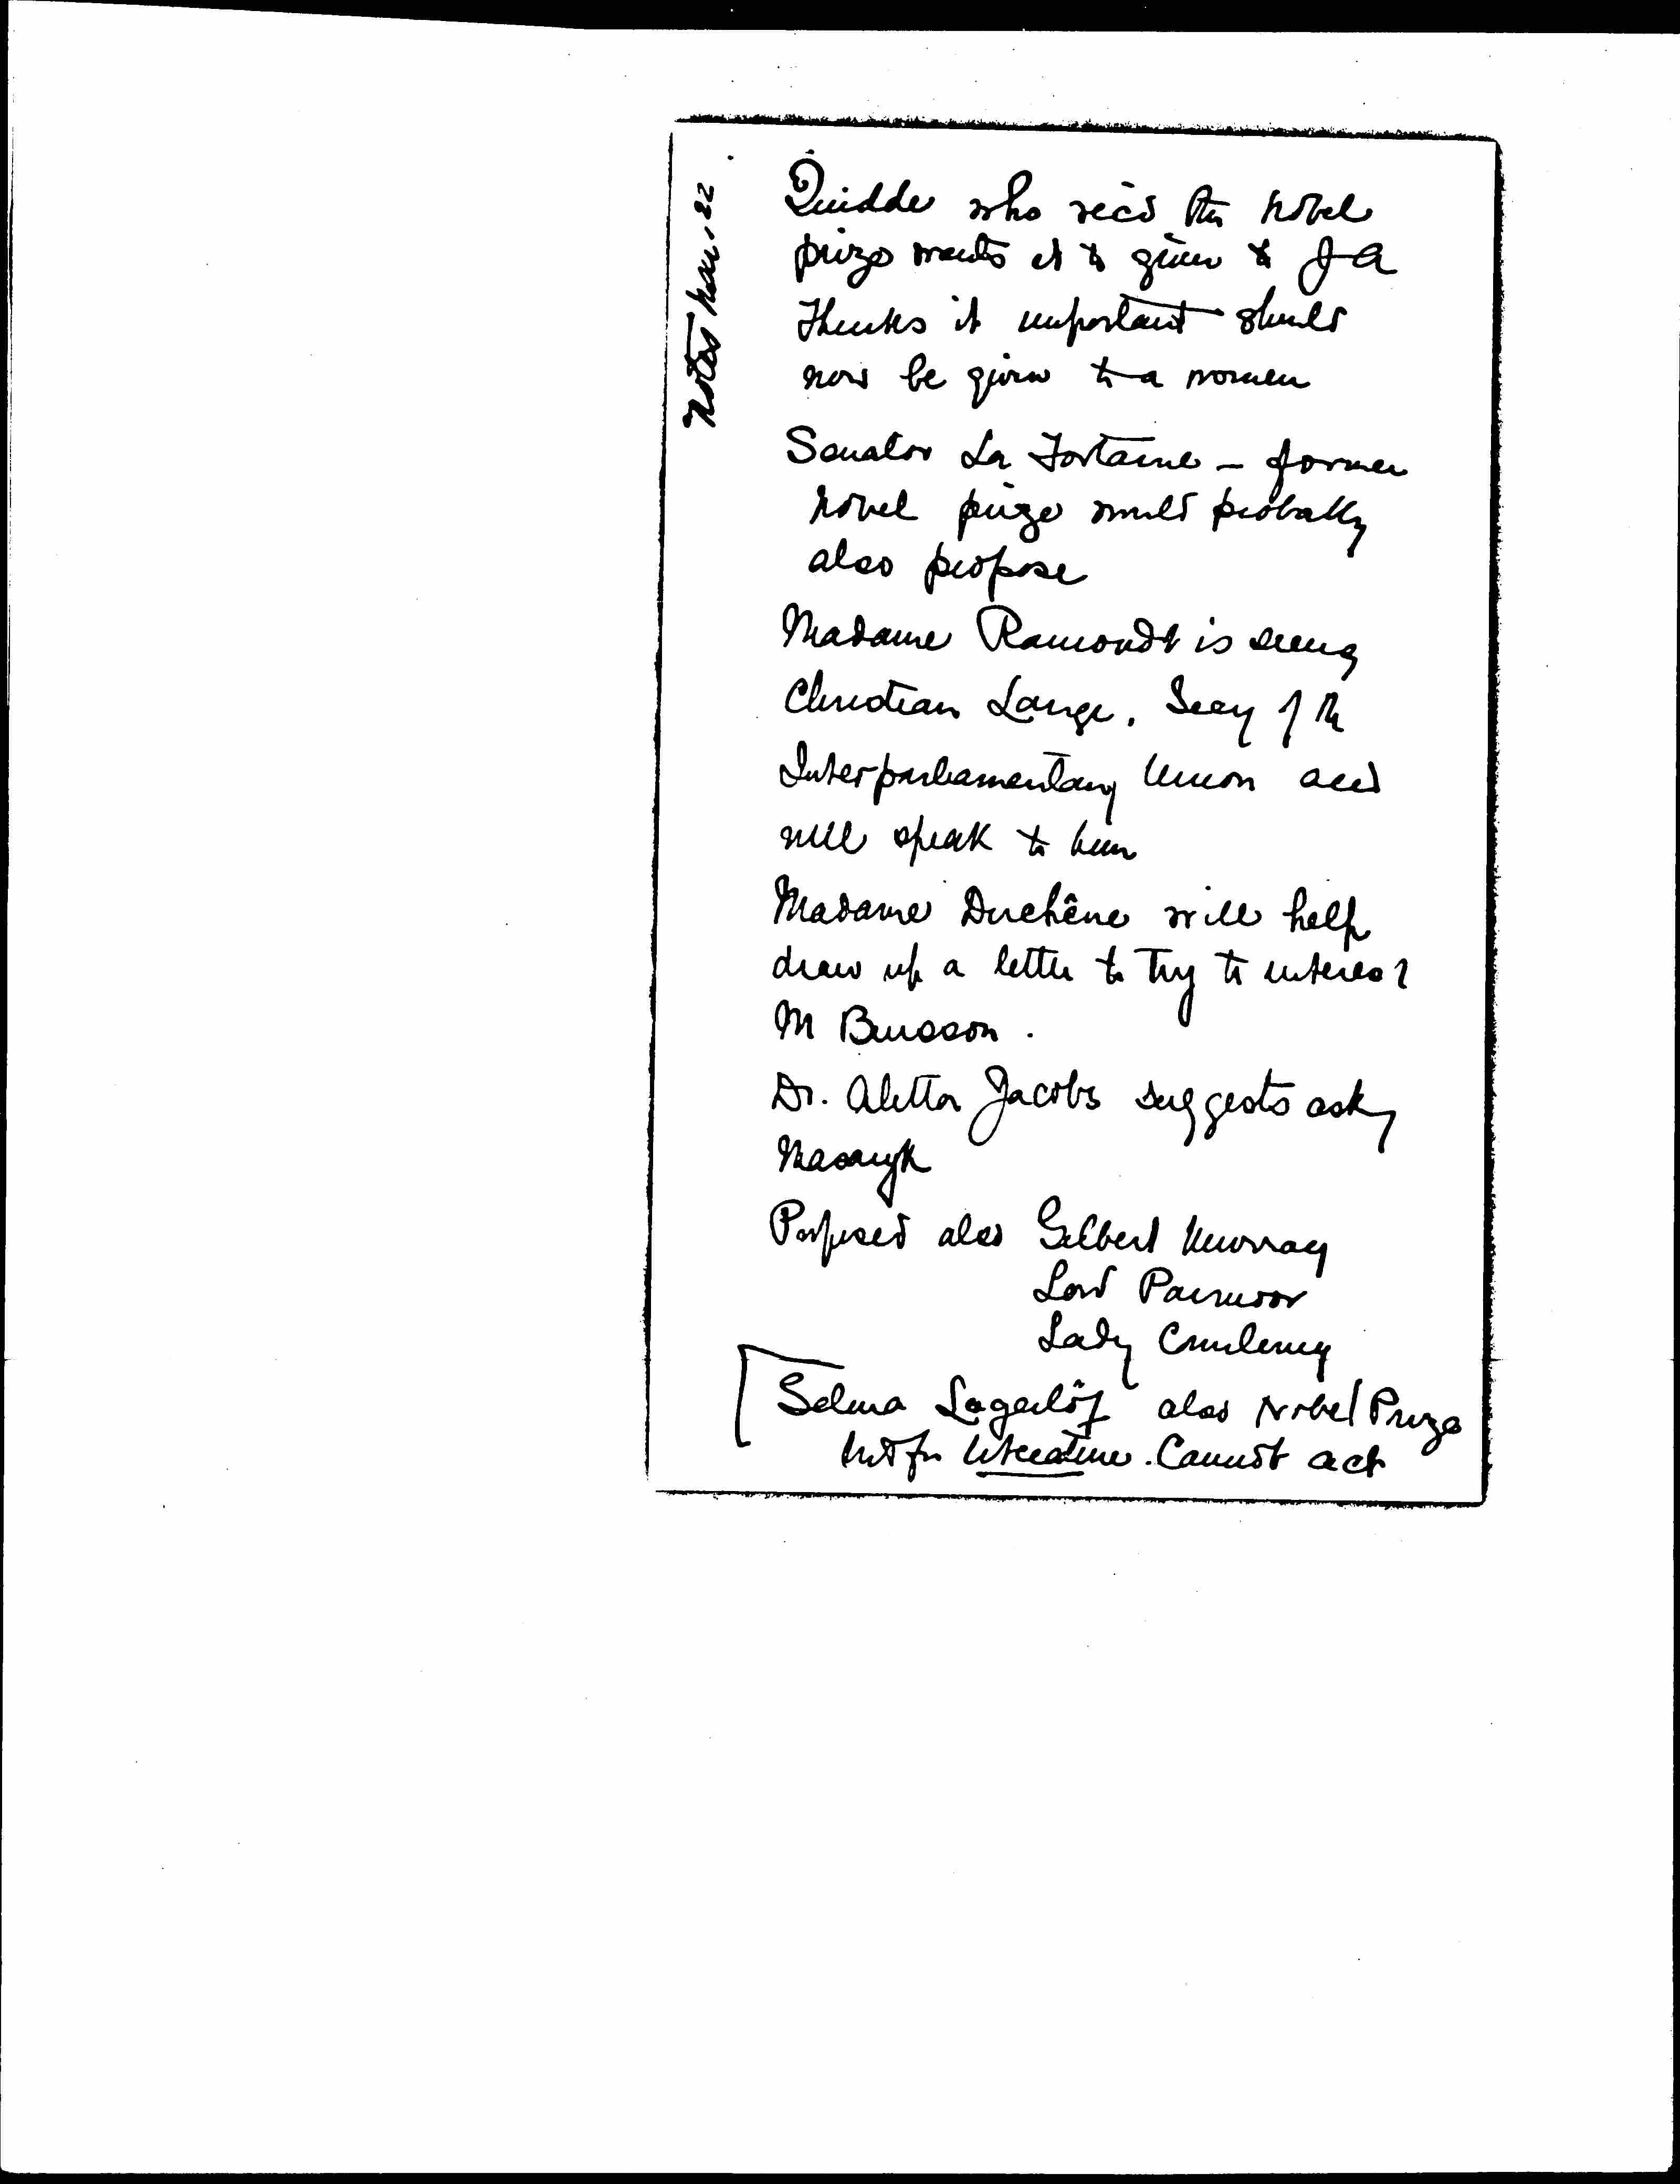 Notes Nov. 22
Quidde who rec'd the Nobel
prize wants it to given to J A
Thinks it important should
now be given to a women
Senator La Fontaine - former
Nobel prize would probably
also propose
Madame Ramondt is seeing
Christian Lange, Secy of the
Interparliamentary Union and
will speak to him
Madame Duchêne will help
draw up a letter to try to interest
M Buisson.
Dr. Aletta Jacobs suggests askg
Masaryk
Proposed also Gilbert Murray
Lord Parmoor
Lady Courteney
[Selma Lagerlöf also Nobel Prize
but for literature. Cannot act